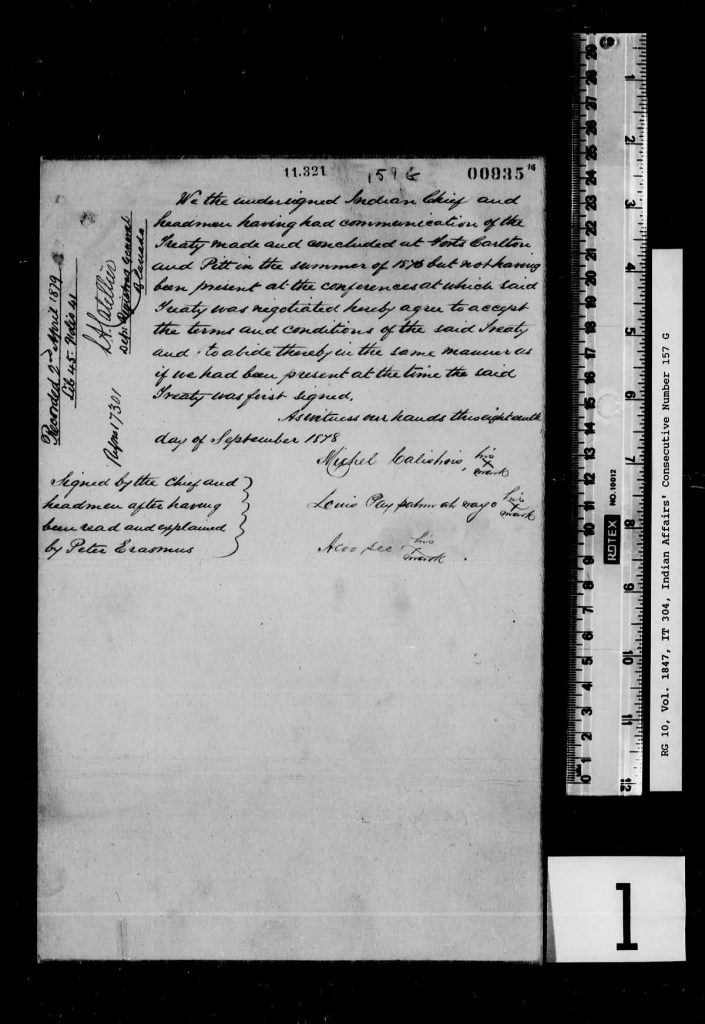 11.321
157 G
00935
We the undersigned Indian Chief and
headmen having had communication of the
Treaty made and concluded at Forts Carlton
and Pitt in the summer of 1876 but not having
been present at the conferences at which said
Treaty was negotiated hereby agree to accept
the terms and conditions of the said Treaty
and to abide thereby in the same manner as
if we had been present at the time the said
Treaty was first signed.
As witness our hands this eighteenth
day of September 1878
Michel Calistrois, his
X
mark
Louis Pay his
X
mark
his
X
mark
Signed by the Chief and
headmen after having
been read and explained
by Peter Erasmus
Recorded 2nd April 1879
Lib 45. Folio 41
L. A. Catellier
Dep: Registrar General
of Canada
17301
0 1 2 3 4 5 6 7 8 9 10 11 12 13 14 15 16 17 18 19 20 21 22 23 24 25 26 27 28 29
ROTEX NO. 10012
1 2 3 4 5 6 7 8 9 10 11 12
RG 10, Vol. 1847, IT 304, Indian Affairs' Consecutive Number 157 G
1